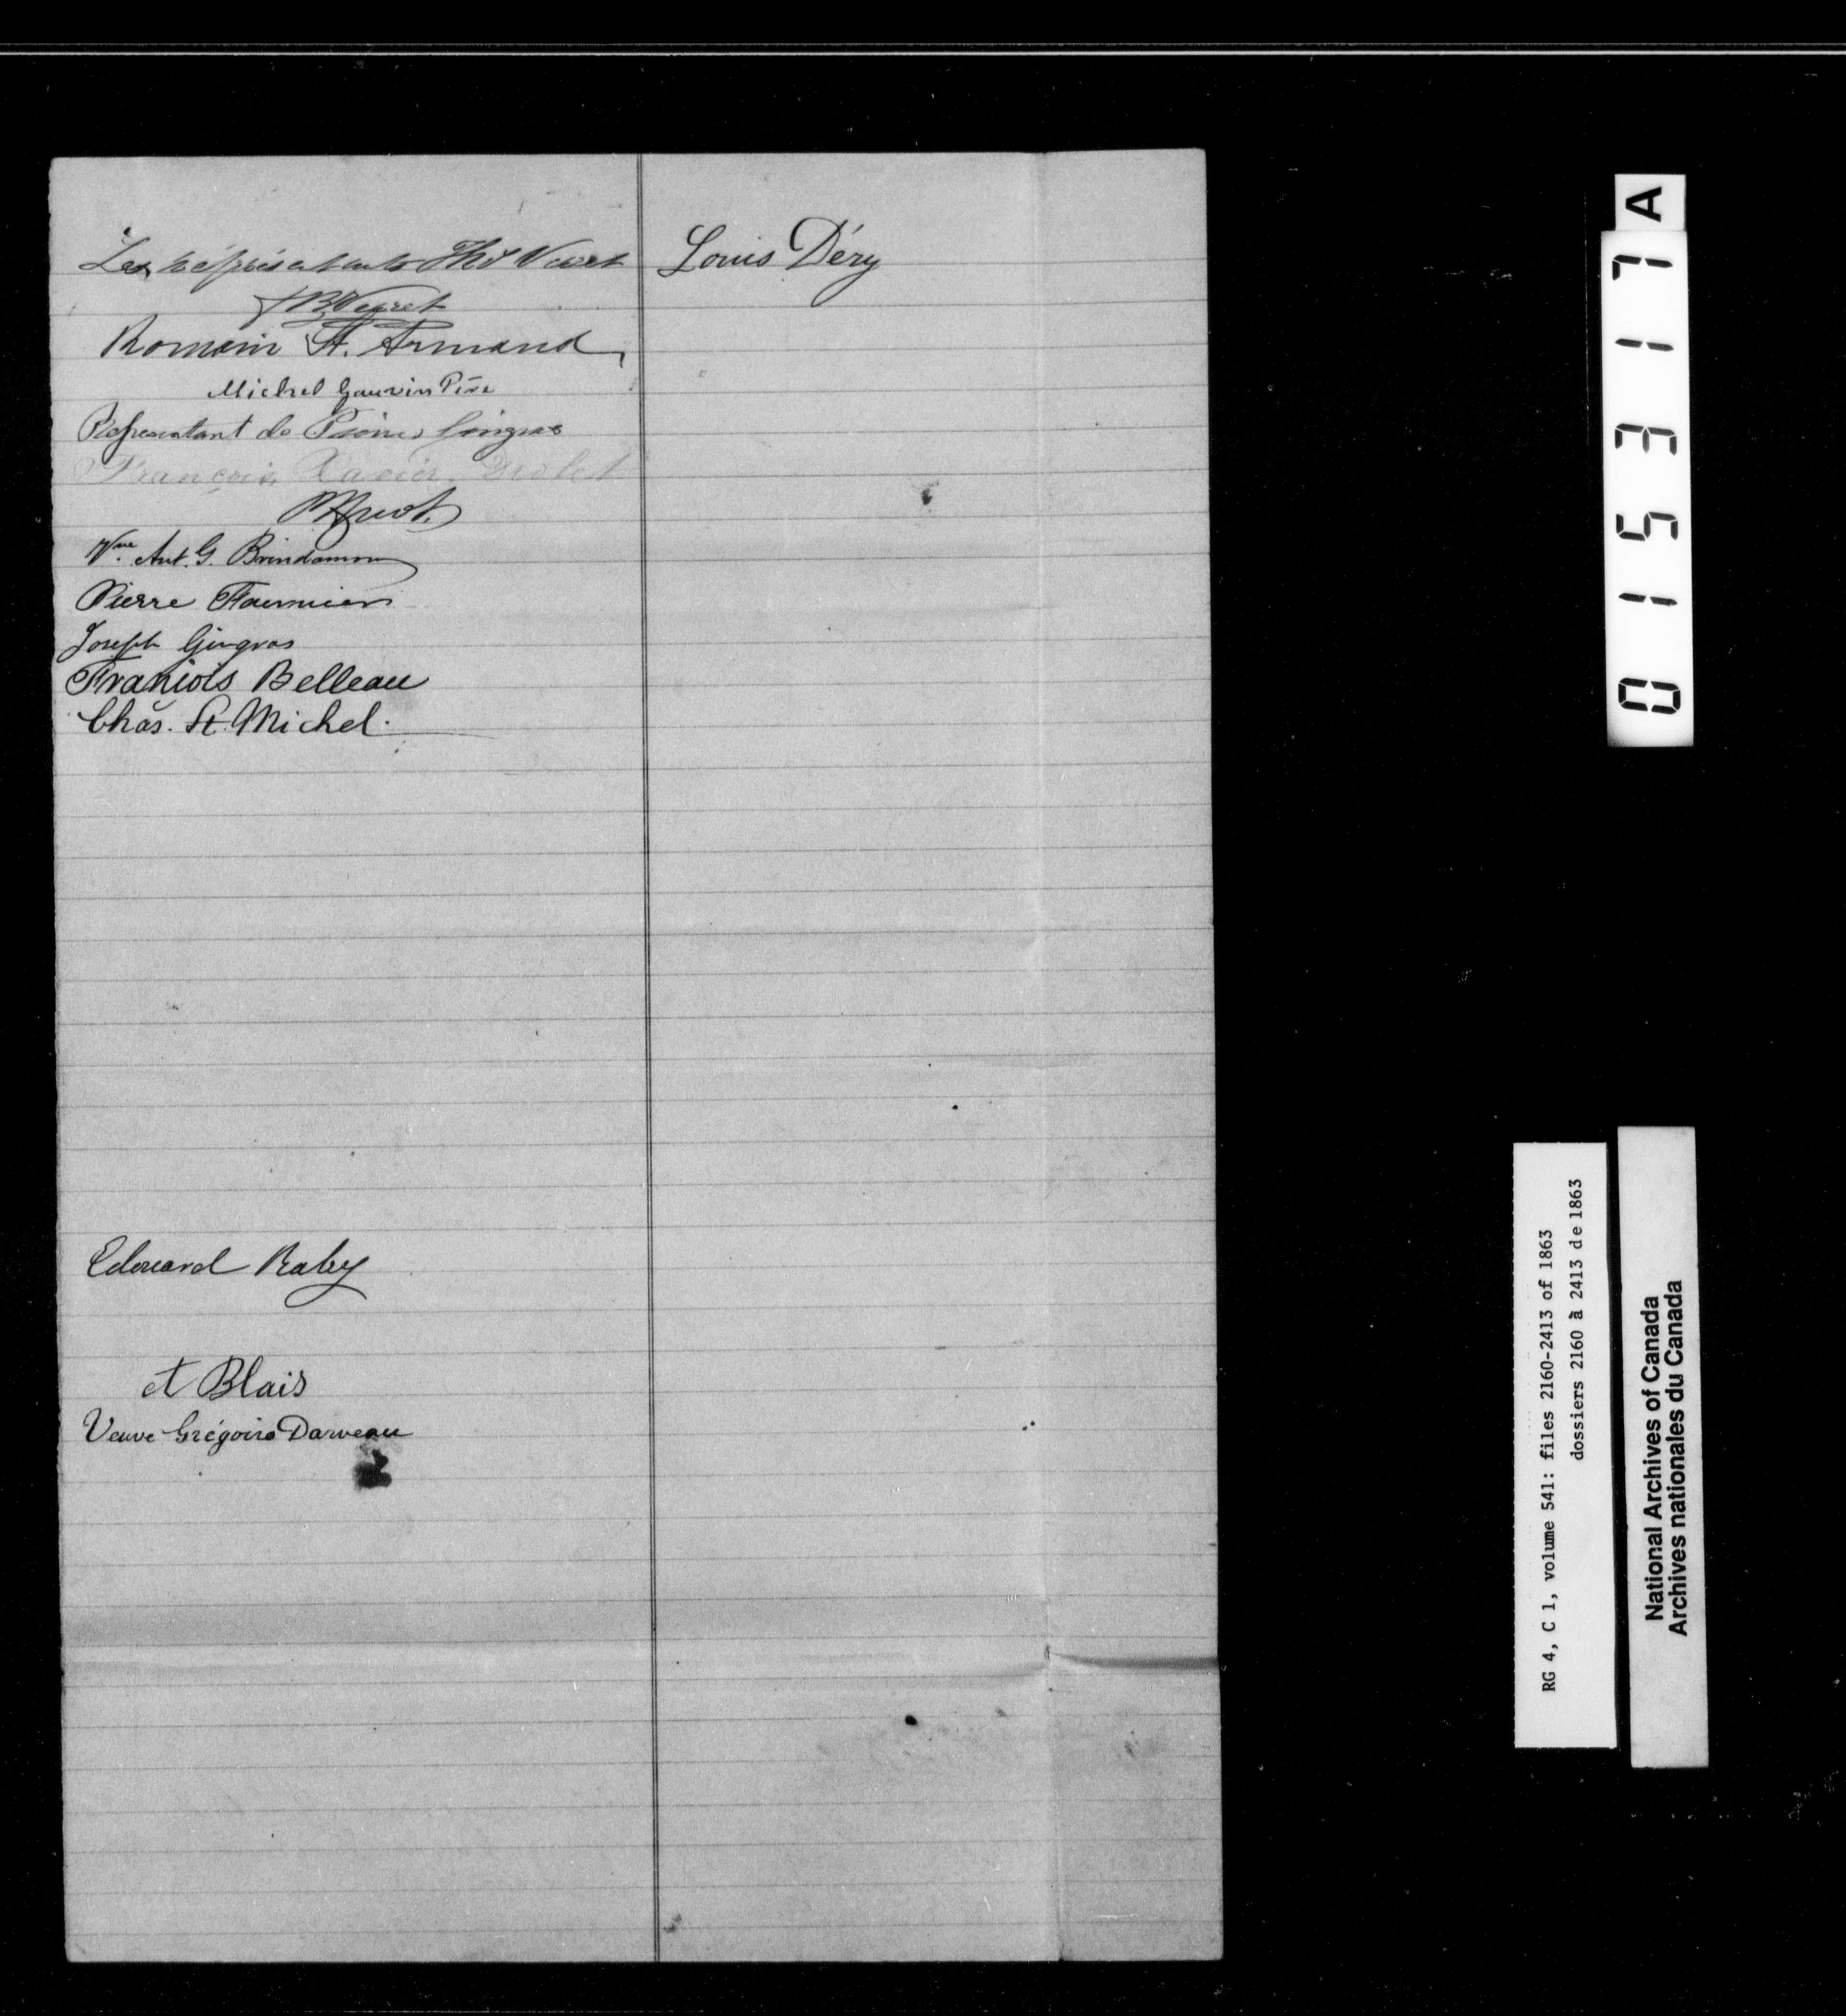 Les réprésentants Thos Verret
JB Verret
Romain St. Armand
Michel Gauvin Père
Representant de Pierre Gingras
François Xavier Drolet
Vve Ant. G. Brindamour
Pierre Fournier
Joseph Gingras
François Belleau
Chas. St. Michel.
Edouard Raby
et Blais
Veuve Grégoire Darveau
Louis Déry
015317 A
RG 4, C 1, volume 541: files 2160-2413 of 1863
dossiers 2160 à 2413 de 1863
National Archives of Canada
Archives nationales du Canada